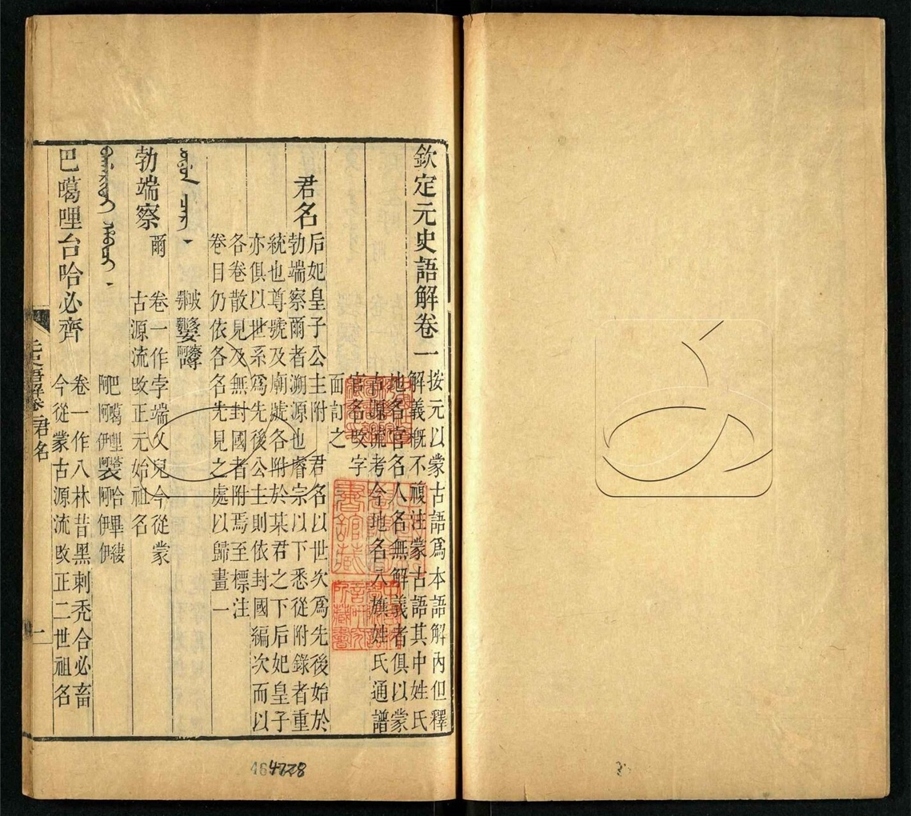 欽定元史語解卷一
按元以蒙古語爲本語解內但釋
解義槪不複注蒙古語其中姓氏
地名官名人名無解義者俱以蒙
古源流考今地名八旗姓氏通譜
官名改字
面訂之
君名
后妃皇子公主附 君名以世次爲先後始於
勃端察爾者溯源也睿宗以下悉從附錄者重
統也尊號及廟號各附於某君之下后妃皇子
亦俱以世系爲先後公主則依封國編次而以
各卷散見及無封國者附焉至標注
卷目仍依各名先見之處以歸畫一
勃端察爾
卷一作孛端乂兒今從蒙
古源流改正元始祖名
巴噶哩台哈必齊
卷一作八林昔黑剌禿合必畜
今從蒙古源流改正二世祖名
元史語解卷一 君名
一
164228